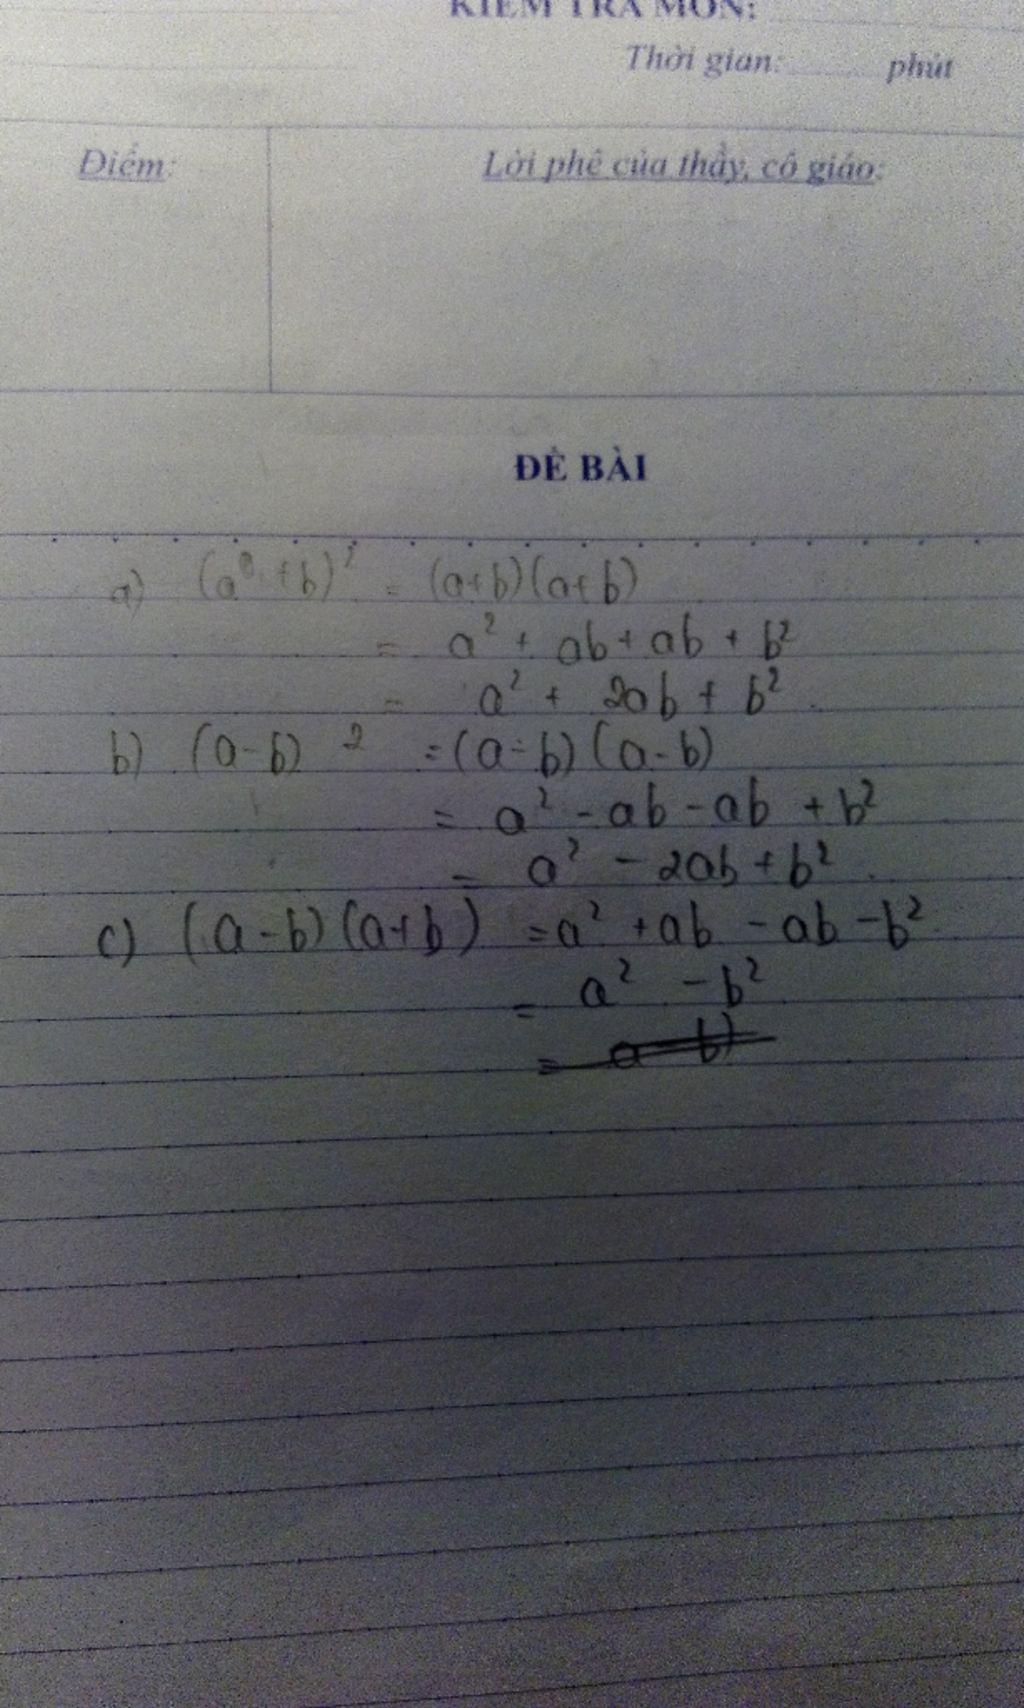 KIỂM TRA MÔN:
Thời gian: phút
Điểm:
Lời phê của thầy, cô giáo:
ĐỀ BÀI
a) (a + b)² = (a+b)(a+b)
= a² + ab + ab + b²
= a² + 2ab + b².
b) (a-b) ² = (a-b) (a-b)
= a² - ab - ab + b²
= a² - 2ab + b².
c) (a-b) (a+b) = a² + ab - ab - b²
= a² - b²
= a b)